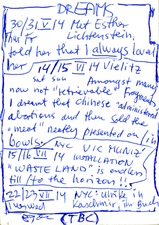 DREAMS
30/31/V/14 Met Esther
Lichtenstein,
told her that I always loved
her 14/15/VI/14 Vielitz
Amongst many
now not "retrievable" fragments
I dreamt that Chinese administered
abortions and then sold the
"meat" neatly presented in
bowls. NYC VIC MUNIZ'
15/16 VII 14 INSTALLATION
"WASTE LAND" is endless
till to the horizon!!
22/23 VII 14 NYC Ulrike in
Kaschmir im Buch
(TBC)